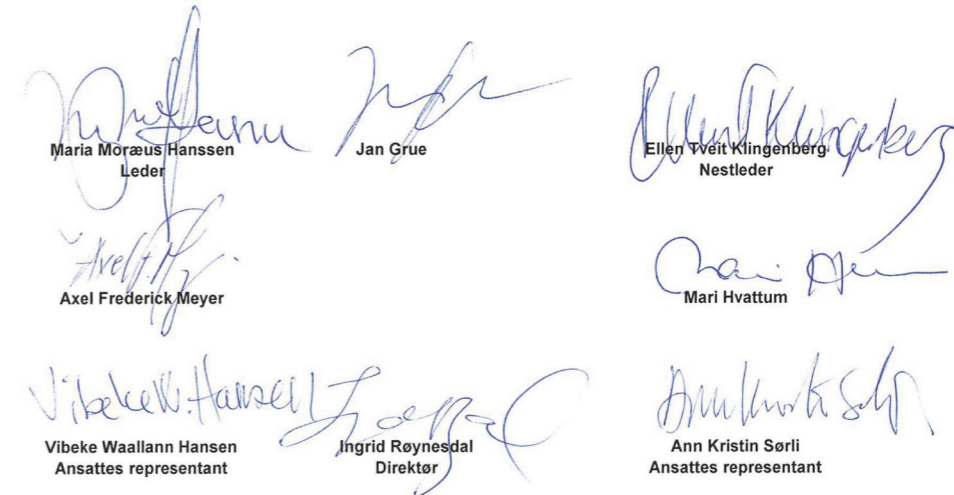 Maria Moræus Hanssen
Leder
Jan Grue
Ellen Tveit Klingenberg
Nestleder
Axel Frederick Meyer
Mari Hvattum
Vibeke W. Hansen
Vibeke Waallann Hansen
Ansattes representant
Ingrid Røynesdal
Direktør
Ann Kristin Sørli
Ansattes representant